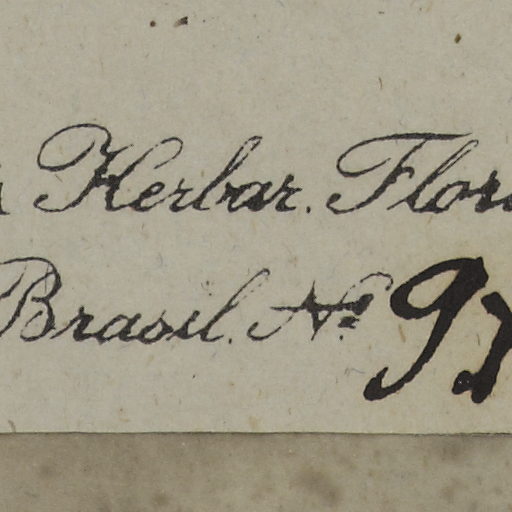 Herbar. Flor
Brasil. Nº 9